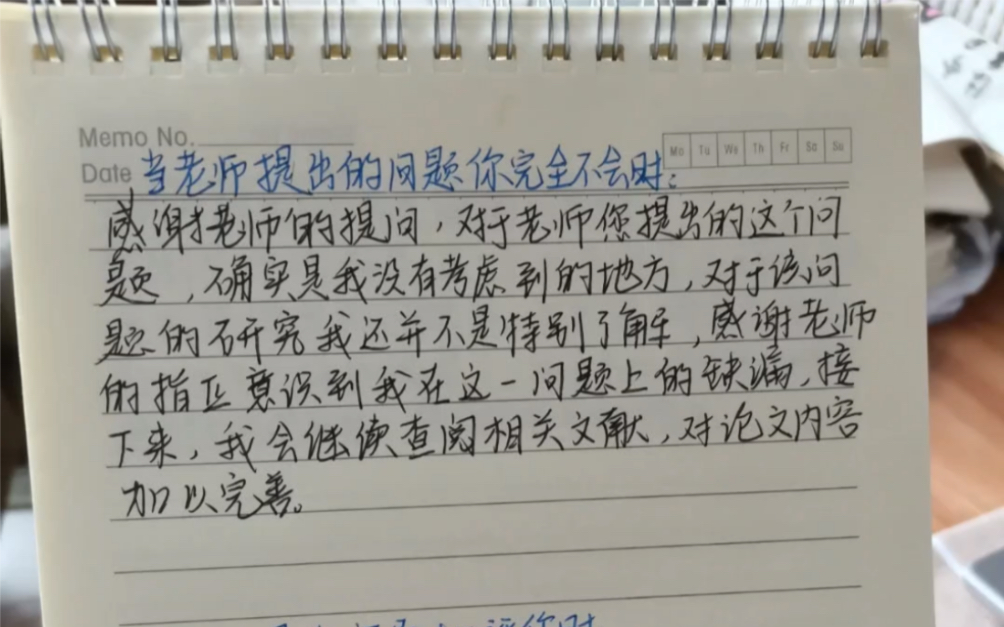 Memo No.
Mo Tu We Th Fr Sa Su
Date 当老师提出的问题你完全不会时:
感谢老师的提问,对于老师您提出的这个问
题,确实是我没有考虑到的地方,对于该问
题的研究我还并不是特别了解,感谢老师
的指正意识到我在这一问题上的缺漏,接
下来,我会继续查阅相关文献,对论文内容
加以完善。